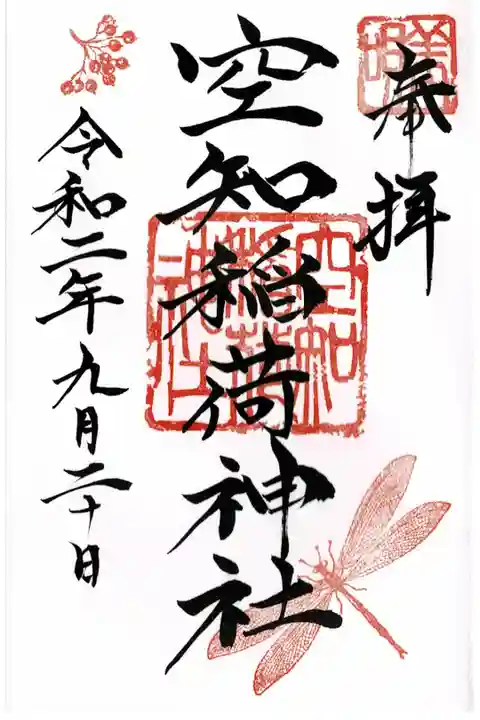 奉拝
空知稲荷神社
空知稲荷神社
令和二年九月二十日